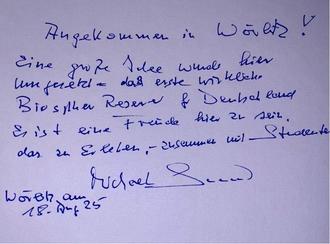 Angekommen in Wörlitz!
Eine große Idee wurde hier
umgesetzt – das erste wirkliche
Biosphen Reservat f. Deutschland
Es ist eine Freude hier zu sein,
das zu Erleben, – zusammen mit Studenten
Michael
Wörlitz am
18. Aug 25